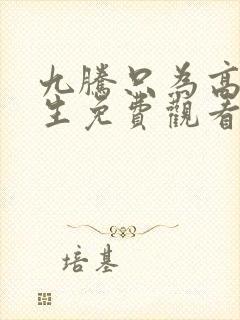 九騰只為高
生免費觀看
培基